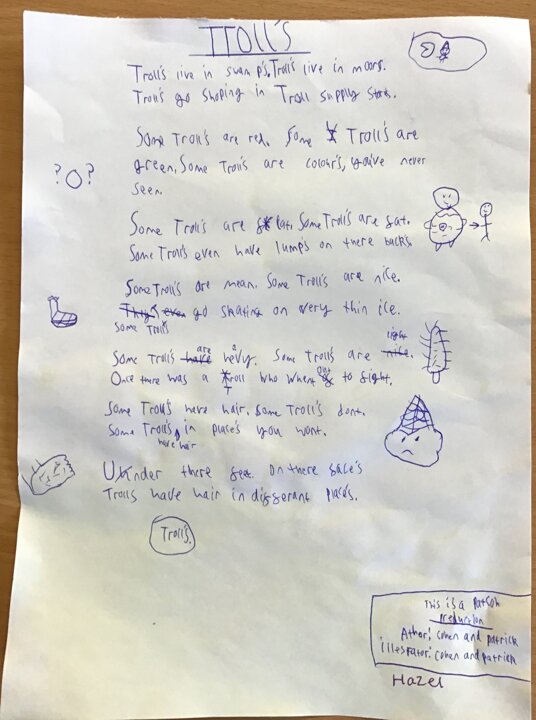 TrOll's
Troll's live in swamp's. Troll's live in moors.
Troll's go shoping in Troll supply
Some Troll's are red. Some Troll's are
green. Some Troll's are colour's, you've never
seen.
? ?
Some Troll's are flat. Some Troll's are fat.
Some Trolls even have lumps on there backs.
Some Troll's are mean. Some Troll's are nice.
go skating on very thin ice.
Some Troll's
Some Troll's are heavy. Some Troll's are light
Once there was a Troll who whent out to fight.
Some Troll's have hair. Some Troll's dont.
Some Troll's have hair in place's you wont.
Under there feet. On there face's
Trolls have hair in differant place's.
Troll's.
This is a Patcoh
Preduction
Ather: cohen and Patrick
illestrator: cohen and patrick
Hazel